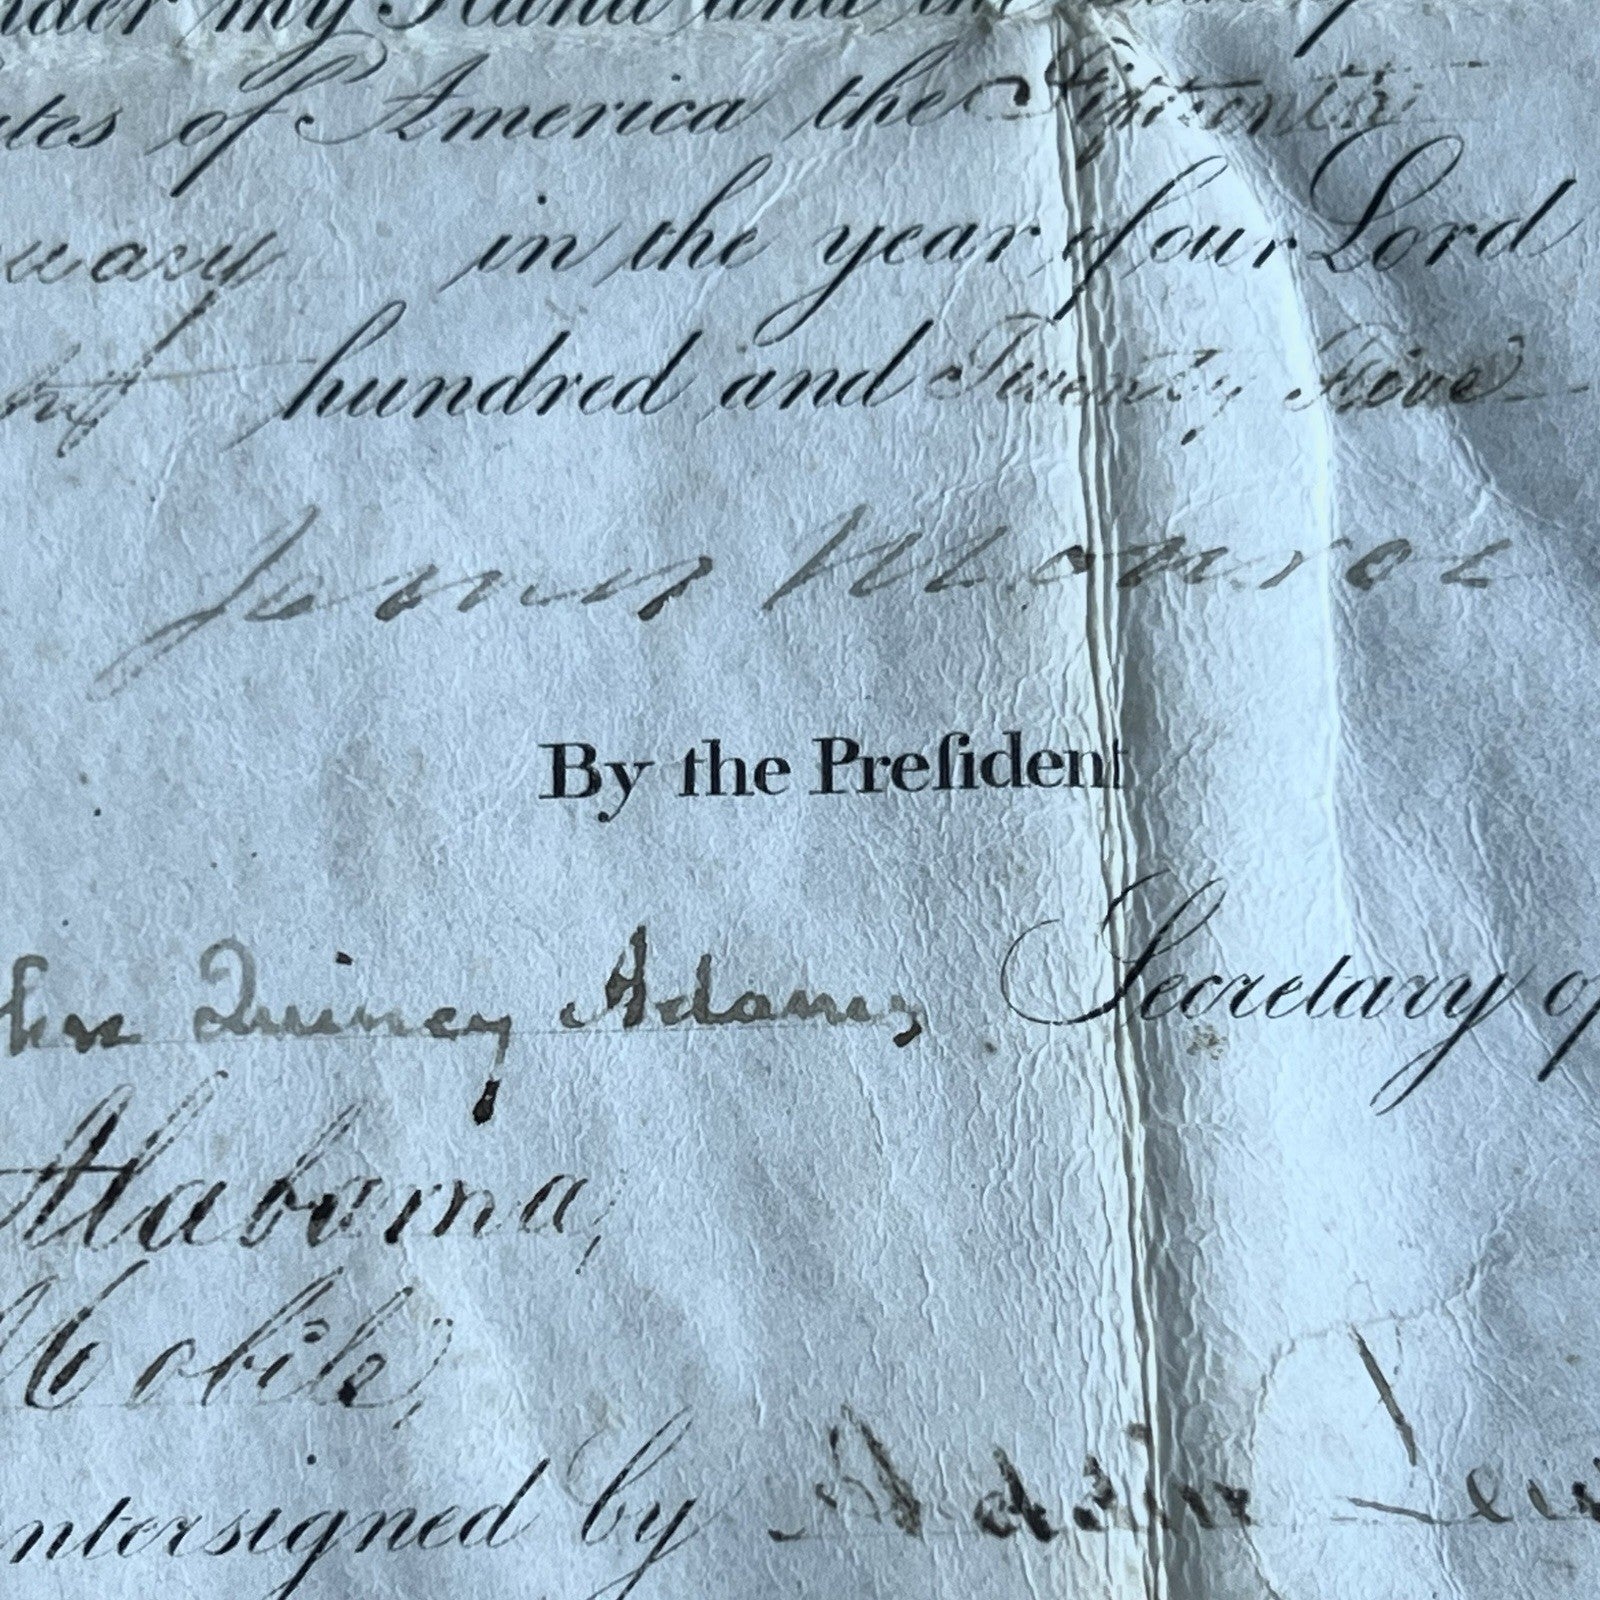 under my Hand and the
ates of America the
uary in the year of our Lord
ht hundred and Twenty Five
James Monroe
By the Preſident
hn Quincy Adams, Secretary of
Alabama,
Mobile,
ntersigned by Adam